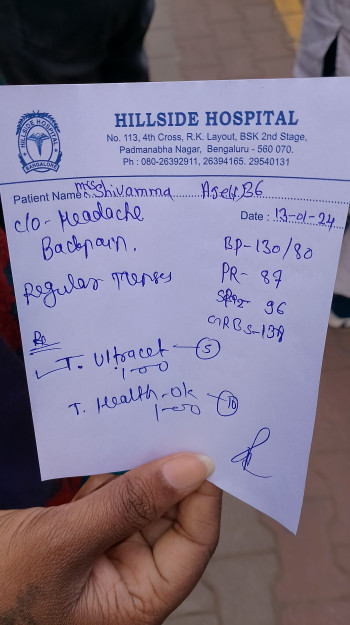 HILLSIDE HOSPITAL
No. 113, 4th Cross, R.K. Layout, BSK 2nd Stage,
Padmanabha Nagar, Bengaluru - 560 070.
Ph : 080-26392911, 26394165. 29540131
HILLSIDE HOSPITAL
BANGALORE
Patient Name Mrs. Shivamma Age
Date : 13-01-24
C/O - Headache
Backpain.
Regular menses
BP - 130/80
PR - 87
SPO2 96
GRBS-
Rx
T. Ultracet 5
1-0-0
T. Health-OK 10
1-0-0